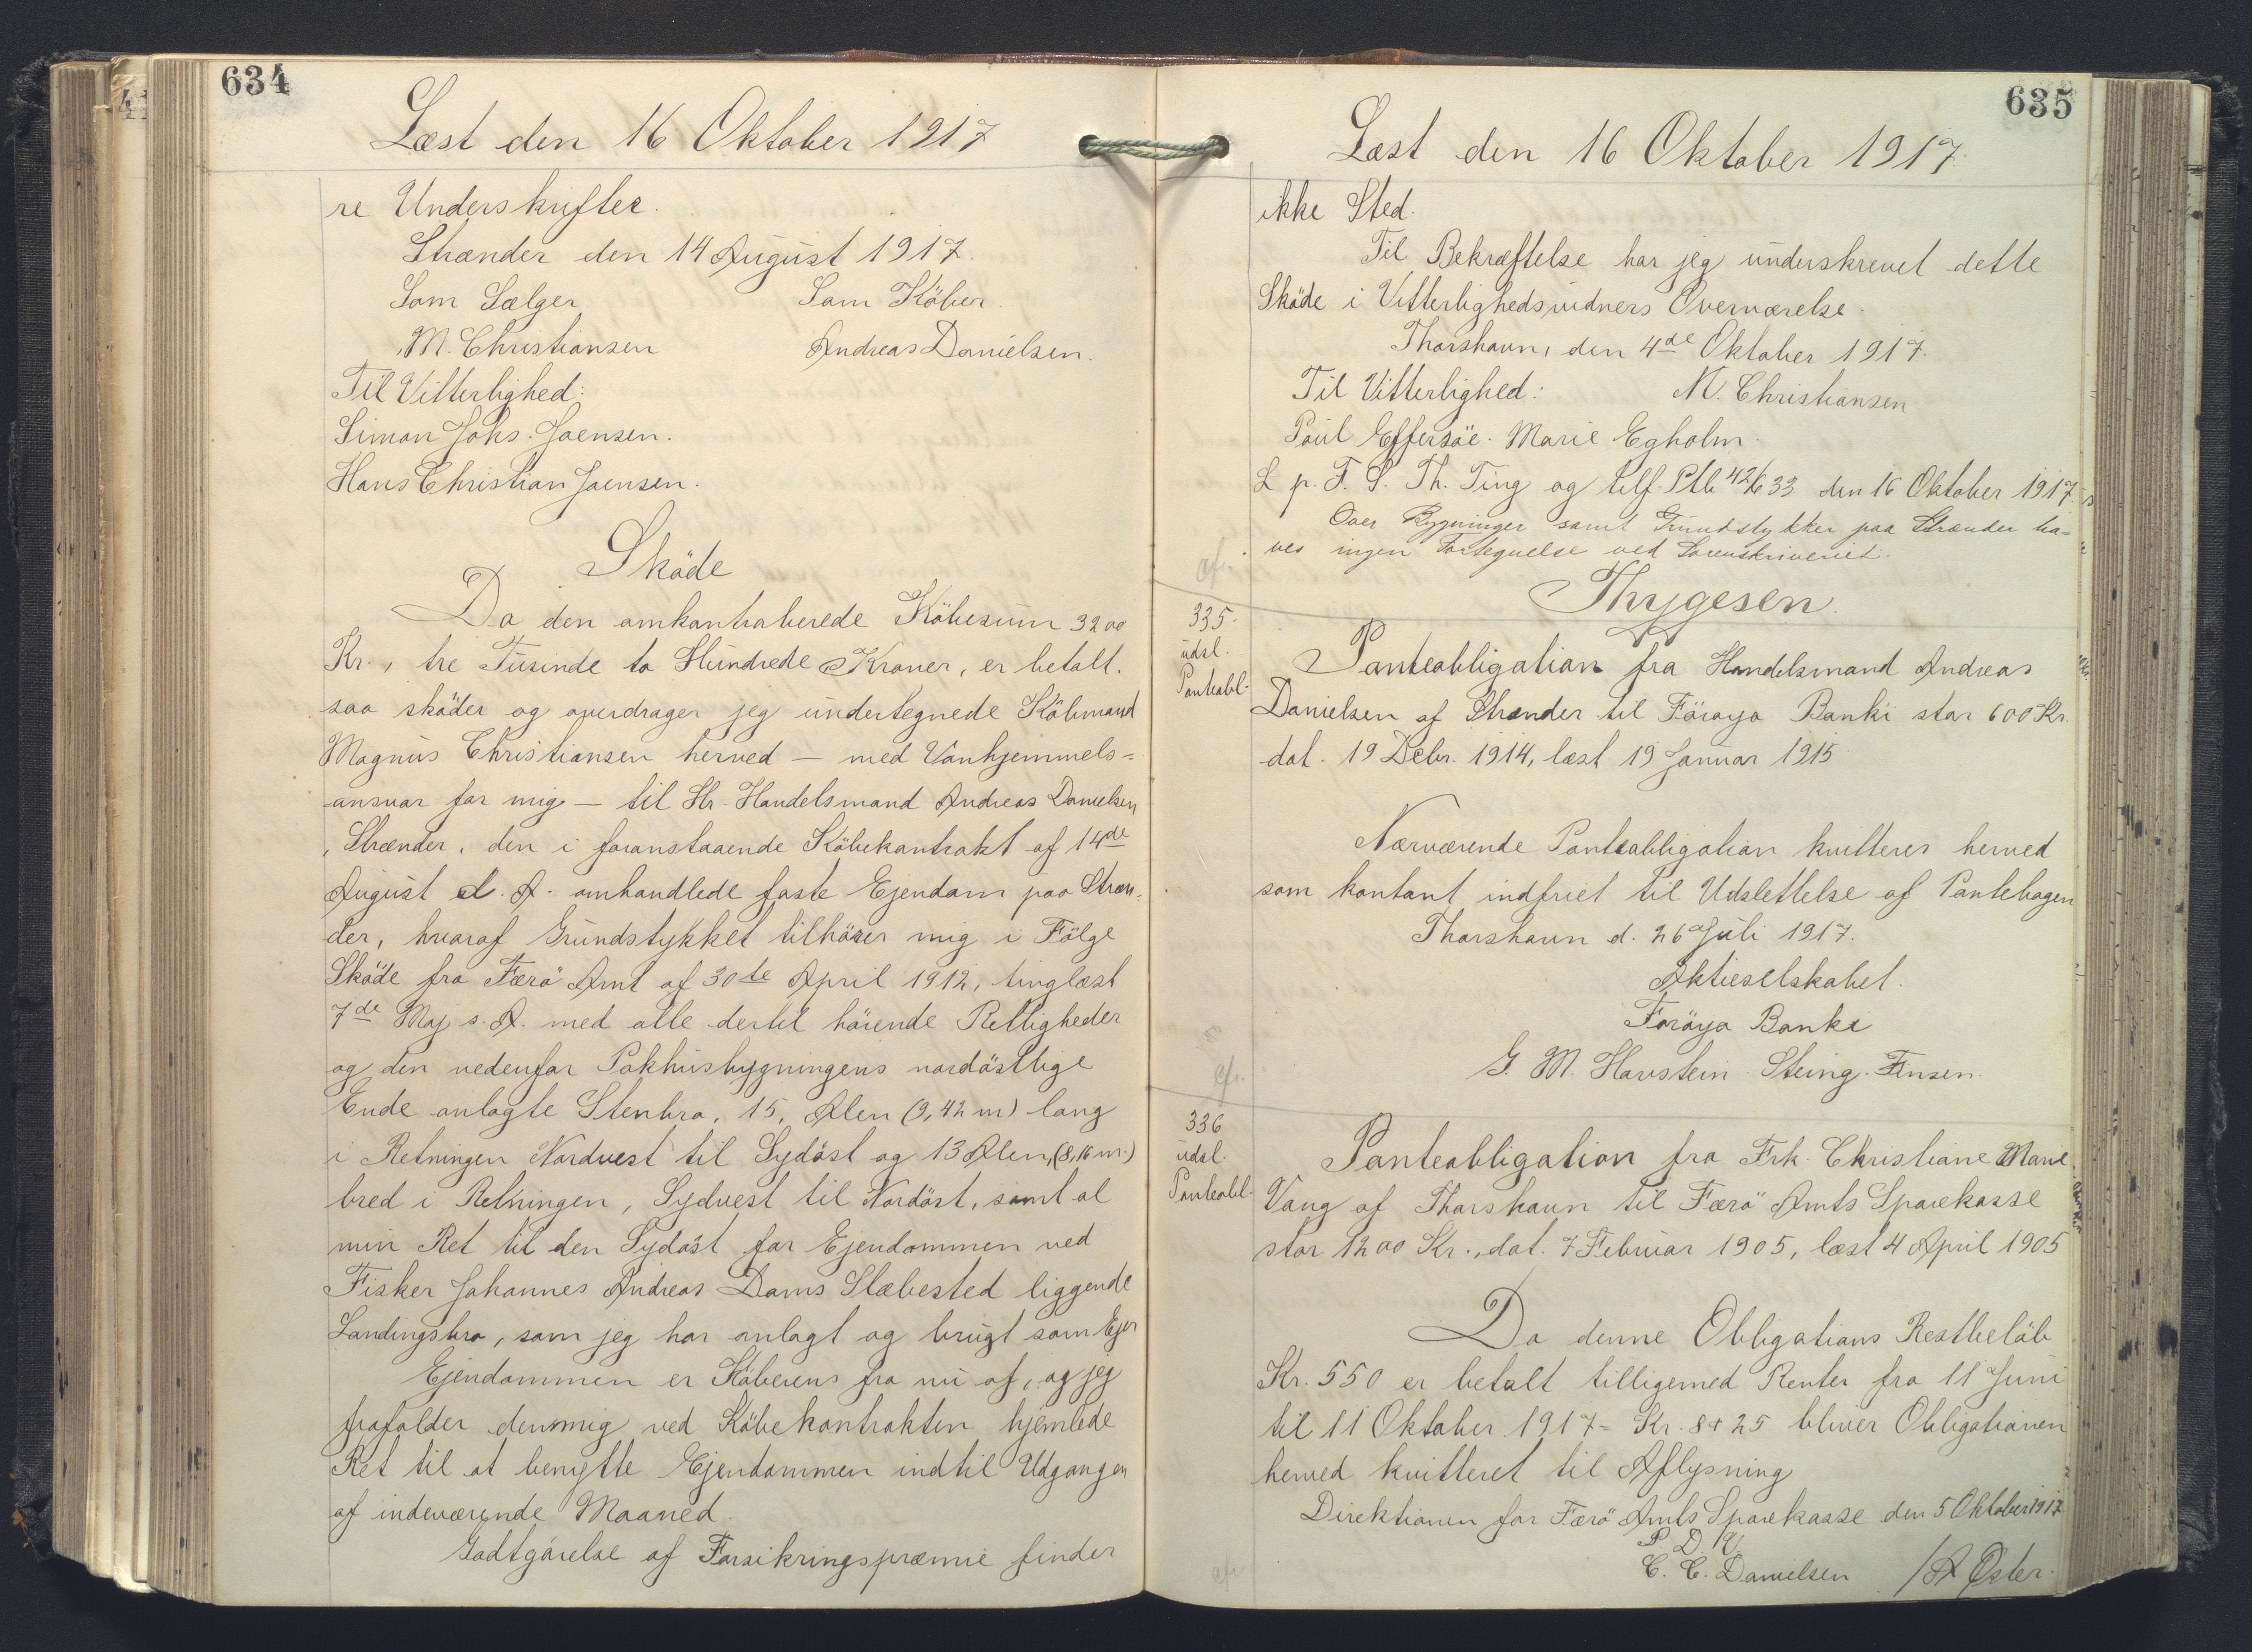 634
Læst den 16 Oktober 1917
re Underskrifter.
Strænder den 14 August 1917.
Som Sælger
Som Köber.
M. Christiansen
Andreas Danielsen.
Til Vitterlighed:
Simon Johs. Joensen.
Hans Christian Joensen.
Sköde
Da den omkontraherede Köbesum 3200
Kr., tre Tusinde to Hundrede Kroner, er betalt.
saa sköder og overdrager jeg undertegnede Köbmand
Magnus Christiansen herved — med Vanhjemmels=
ansvar for mig — til Hr. Handelsmand Andreas Danielsen
, Strænder, den i foranstaaende Köbekontrakt af 14de
August d. A. omhandlede faste Ejendom paa Stræn=
der, hvoraf Grundstykket tilhörer mig i Fölge
Sköde fra Færö Amt af 30te April 1912, tinglæst
7de Maj s. A. med alle dertil hörende Rettigheder
og den nedenfor Pakhusbygningens nordöstlige
Ende anlagte Stenbro, 15, Alen (9,42 m) lang
i Retningen Nordvest til Sydöst og 13 Alen, (8,16 m.)
bred i Retningen, Sydvest til Nordöst, samt al
min Ret til den Sydöst for Ejendommen ved
Fisker Johannes Andreas Dams Slæbested liggende
Landingsbro, som jeg har anlagt og brugt som Ejer
Ejendommen er Köberens fra nu af, og jeg
frafalder den mig ved Köbekontrakten hjemlede
Ret til at benytte Ejendommen indtil Udgangen
af indeværende Maaned.
Godtgörelse af Forsikringspræmie finder
635
Læst den 16 Oktober 1917.
ikke Sted.
Til Bekræftelse har jeg underskrevet dette
Sköde i Vitterlighedsvidners Overværelse.
Thorshavn, den 4de Oktober 1917.
Til Vitterlighed:
M. Christiansen
Poul Effersöe. Marie Egholm.
L p. F. S. Th. Ting og tilf. Ptb 42/633 den 16 Oktober 1917.
Over Bygninger samt Grundstykker paa Strænder ha=
ves ingen Fortegnelse ved Sorenskriveriet.
Thygesen.
cfr.
335.
udsl.
Panteobl.
Panteobligation fra Handelsmand Andreas
Danielsen af Strænder til Föroya Banki stor 600 Kr.
dat. 19 Debr. 1914, læst 19 Januar 1915
Nærværende Panteobligation kvitteres herved
som kontant indfriet til Udslettelse af Pantebogen
Thorshavn d. 26 Juli 1917.
Aktieselskabet.
Föröya Banki
G. M. Havstein Steing. Finsen.
cfr.
336
udsl.
Panteobl.
Panteobligation fra Frk. Christiane Marie
Vang af Thorshavn til Færö Amts Sparekasse
stor 1200 Kr., dat. 7 Februar 1905, læst 4 April 1905
Da denne Obligations Restbelöb
Kr. 550 er betalt tilligemed Renter fra 11 Juni
til 11 Oktober 1917 = Kr. 8 + 25 bliver Obligationen
herved kvitteret til Aflysning
Direktionen for Færö Amts Sparekasse den 5 Oktober 1917
P. D. V.
C. C. Danielsen
/A Öster.